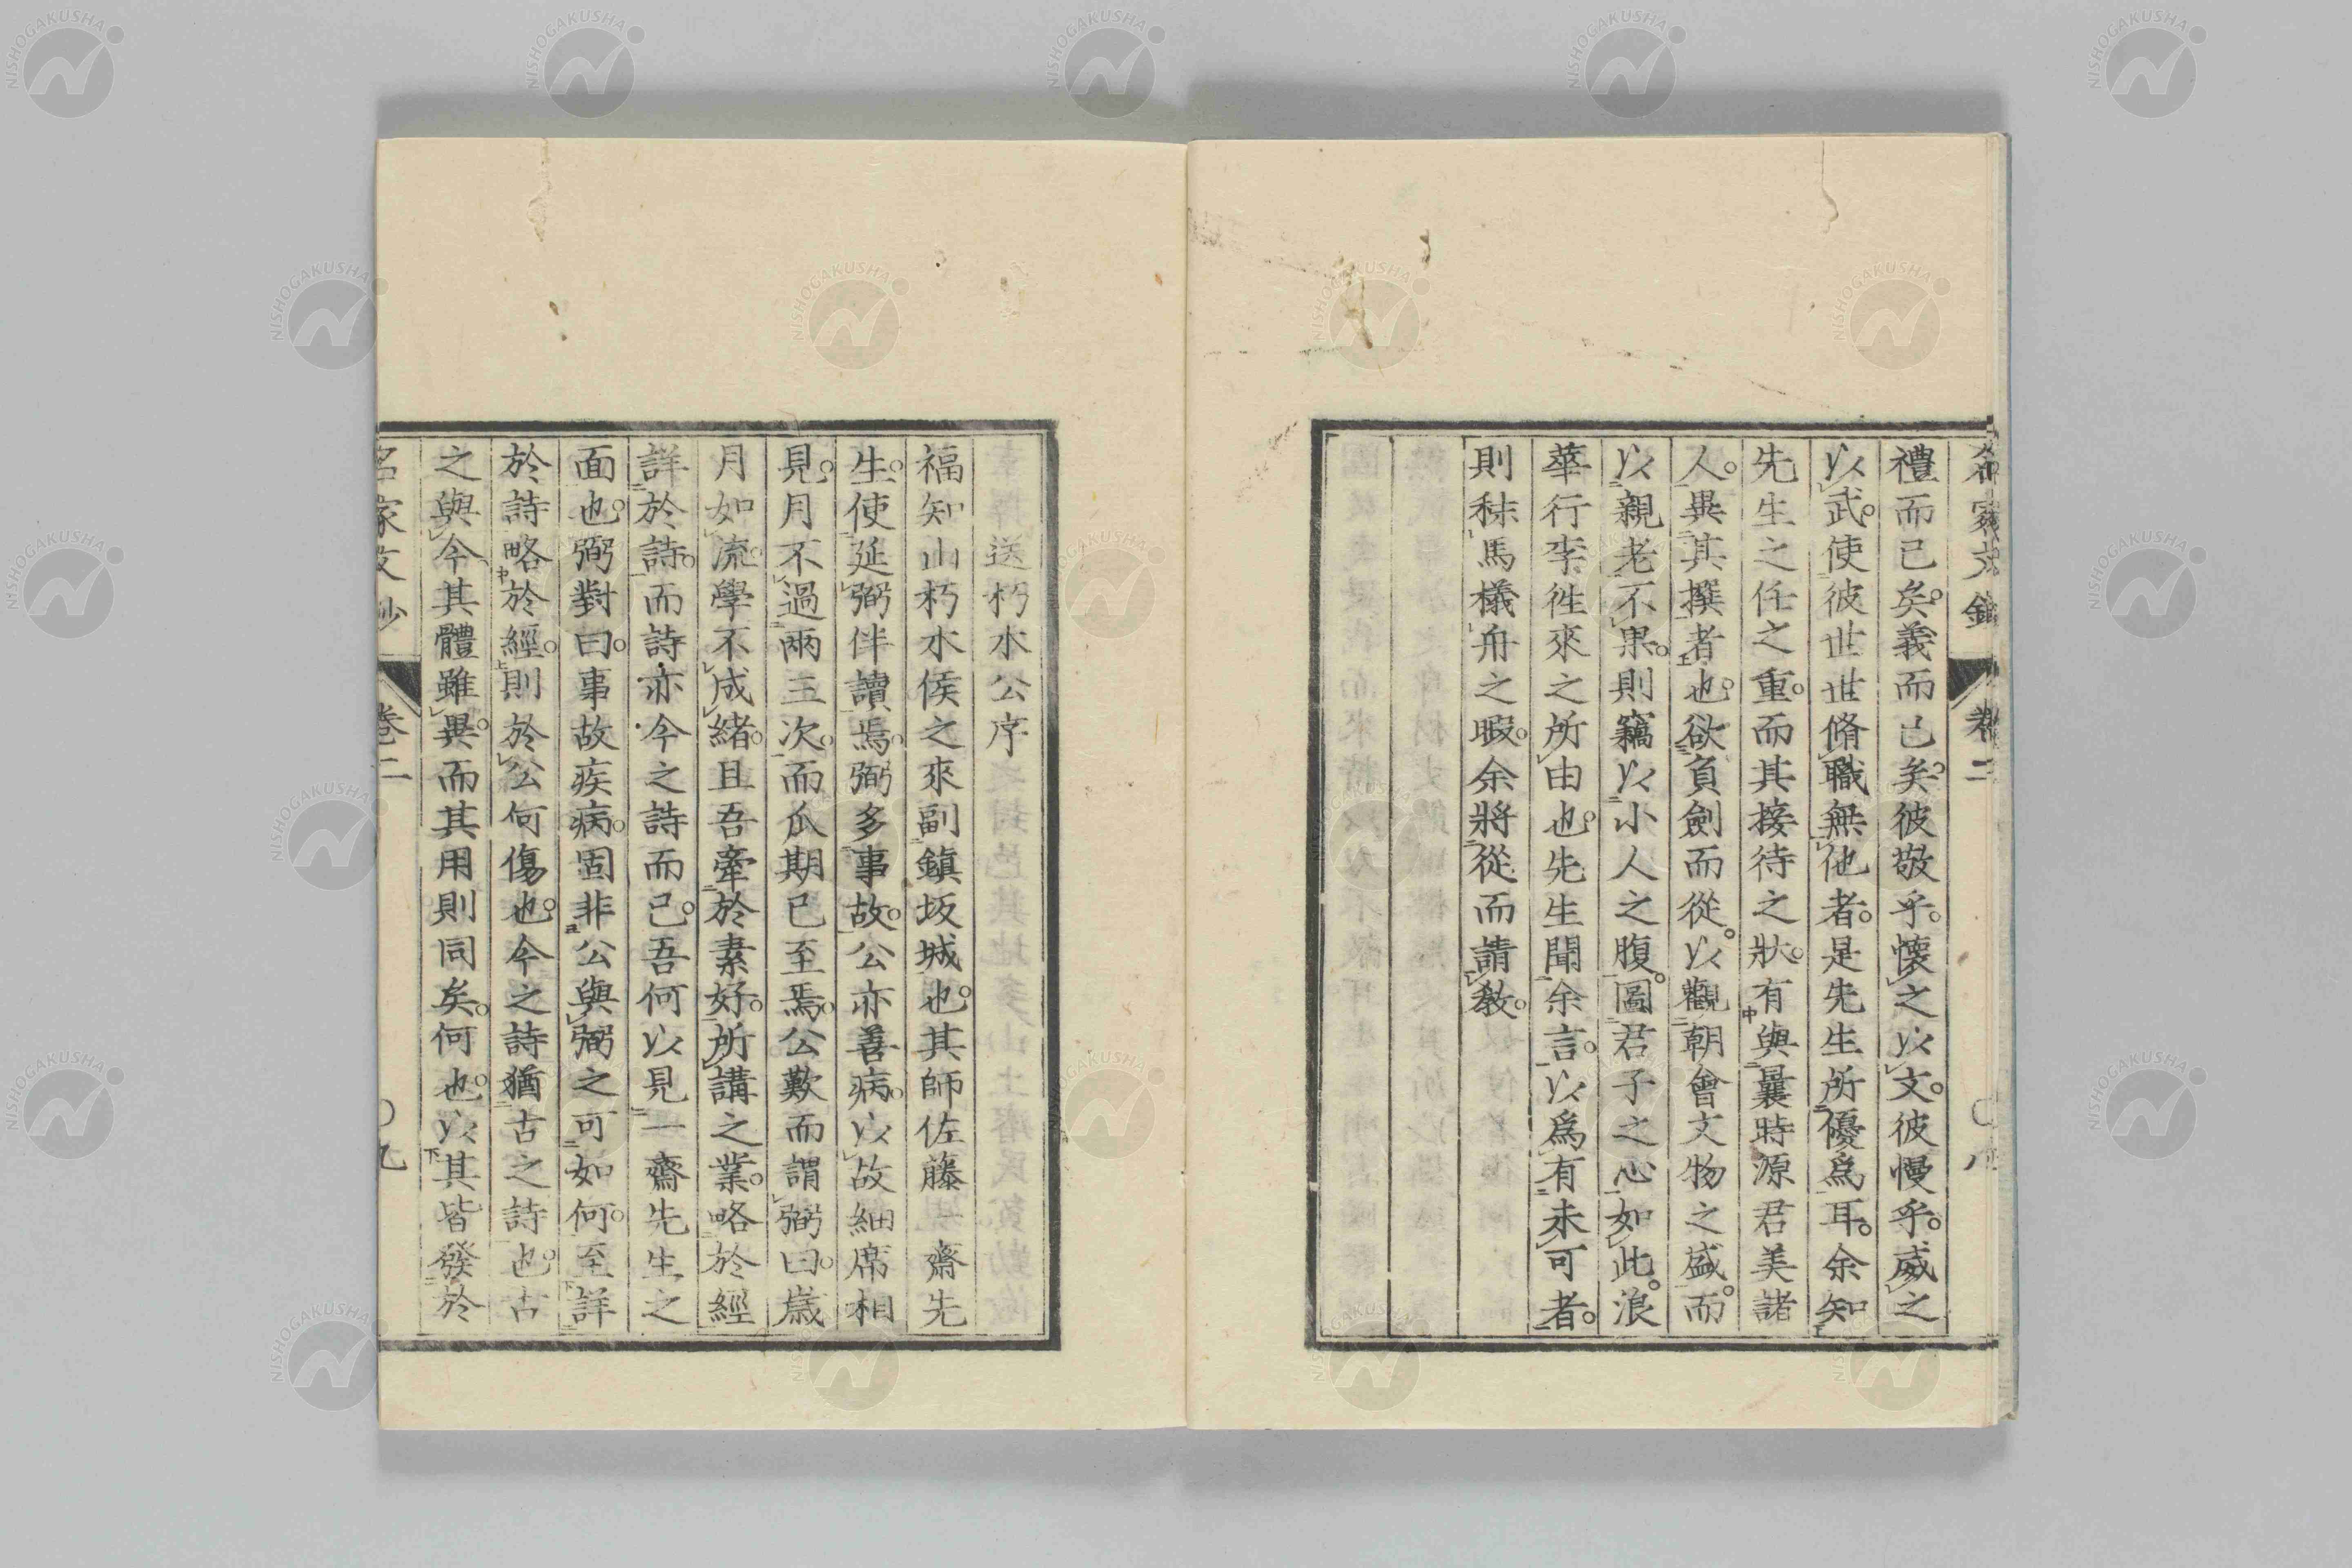 禮而已矣。義而已矣。彼敬乎。懷之以文。彼慢乎。威之
以武。使彼世世脩職無他者。是先生所優爲耳。余知
先生之任之重。而其接待之狀。有與曩時源君美諸
人。異其撰者也。欲負劍而從。以觀朝會文物之盛。而
以親老不果。則竊以小人之腹。圖君子之心如此。浪
華行李徃來之所由也。先生聞余言。以爲有未可者。
則秣馬檥舟之暇。余將從而請敎。
卷二
送朽木公序
福知山朽木侯之來副鎭坂城也。其師佐藤一齋先
生。使延弼伴讀焉。弼多事故。公亦善病。以故細席相
見。月不過兩三次。而瓜期已至焉。公歎而謂弼曰。歳
月如流。學不成緒。且吾牽於素好。所講之業。略於經
詳於詩。而詩亦今之詩而已。吾何以見一齋先生之
面也。弼對曰。事故疾病。固非公與弼之可如何。至詳
於詩略於經。則於公何傷也。今之詩猶古之詩也。古
之與今其體雖異。而其用則同矣。何也。以其皆發於
名家文抄 卷二 〇九
NISHOGAKUSHA